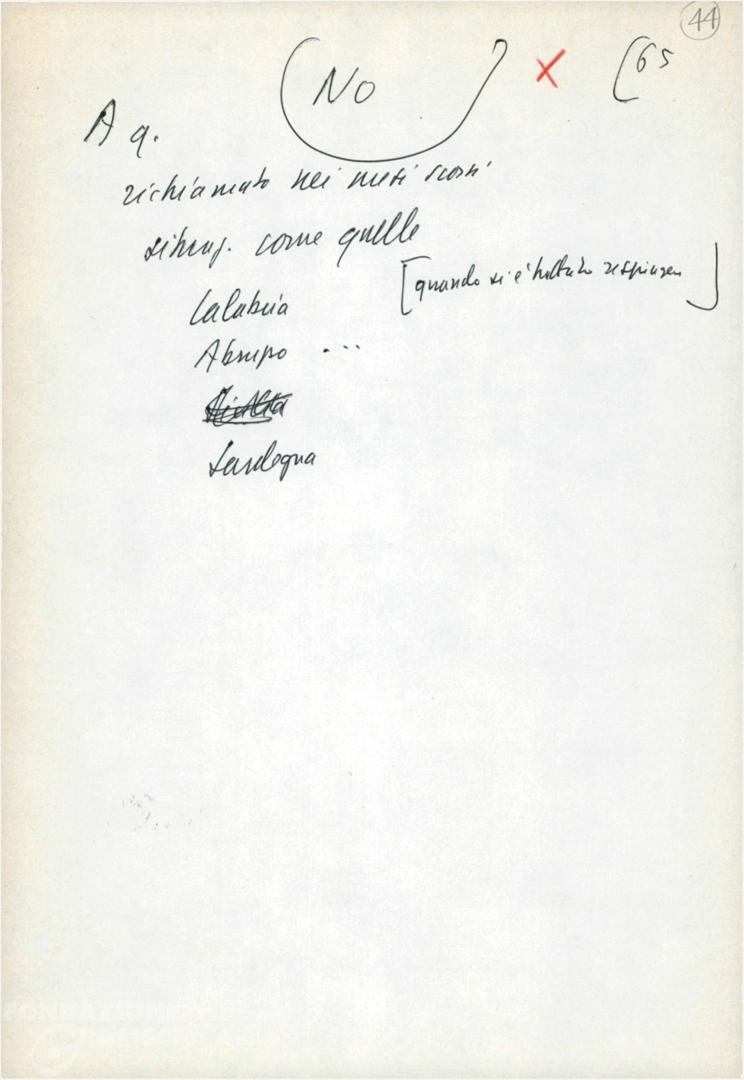 44
No
x
(65
A q.
richiamato nei mesi scorsi
situaz. come quelle
[quando si è trattato respingere]
Calabria
Abruzzo ...
Sardegna
FONDAZIONE